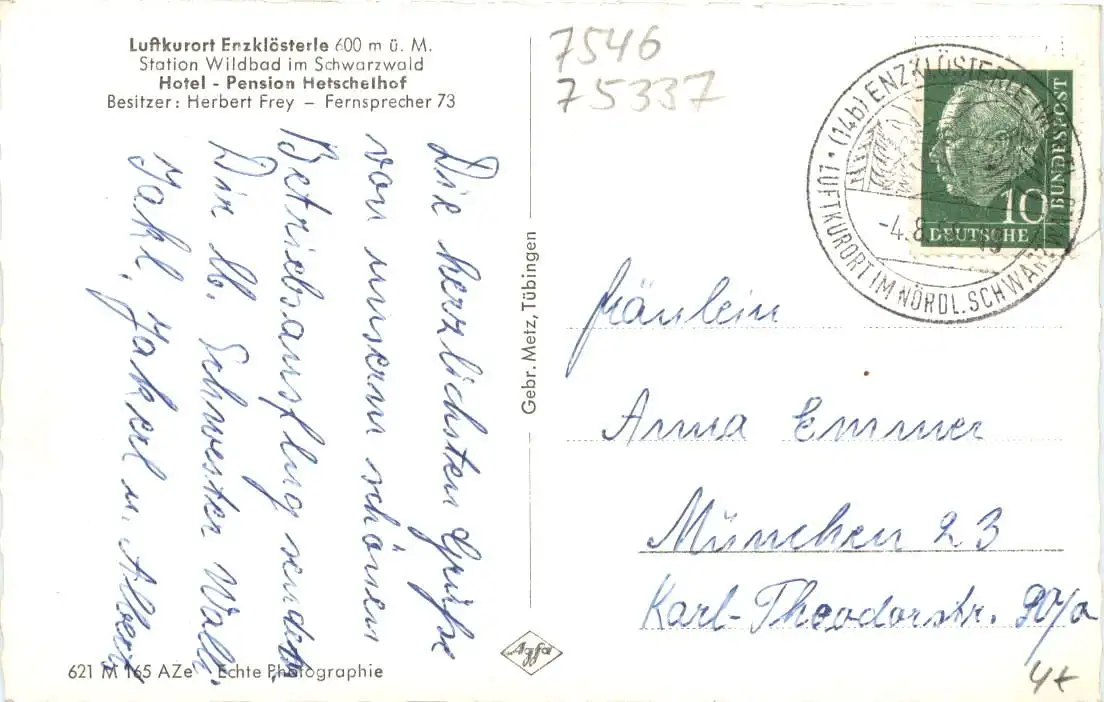 Luftkurort Enzklösterle 600 m ü. M.
Station Wildbad im Schwarzwald
Hotel - Pension Hetschelhof
Besitzer: Herbert Frey – Fernsprecher 73
Die herzlichsten Grüße
von unserm schönen
Betriebsausflug senden
Dir lb. Schwester Walli
u. Albert
621 M 165 AZe Echte Photographie
Gebr. Metz, Tübingen
Agfa
7546
75337
(14b) ENZKLÖSTERLE
LUFTKURORT IM NÖRDL. SCHWARZWALD
-4.8.
10
DEUTSCHE
BUNDESPOST
Fräulein
Anna Emmer
München 23
Karl-Theodorstr. 90/0